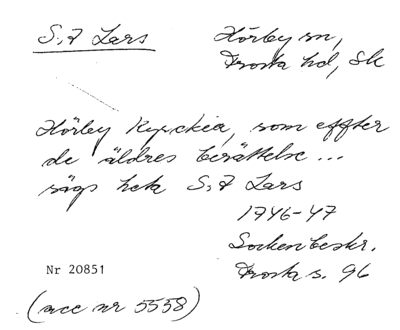 S:t Lars
Hörby sn,
Frosta hd, Sk
Hörby Kyrckia, som effter
de äldres berättelse...
sägs heta S:t Lars
1746-47
Sockenbeskr.
Frosta s. 96
Nr 20851
(acc nr 5558)